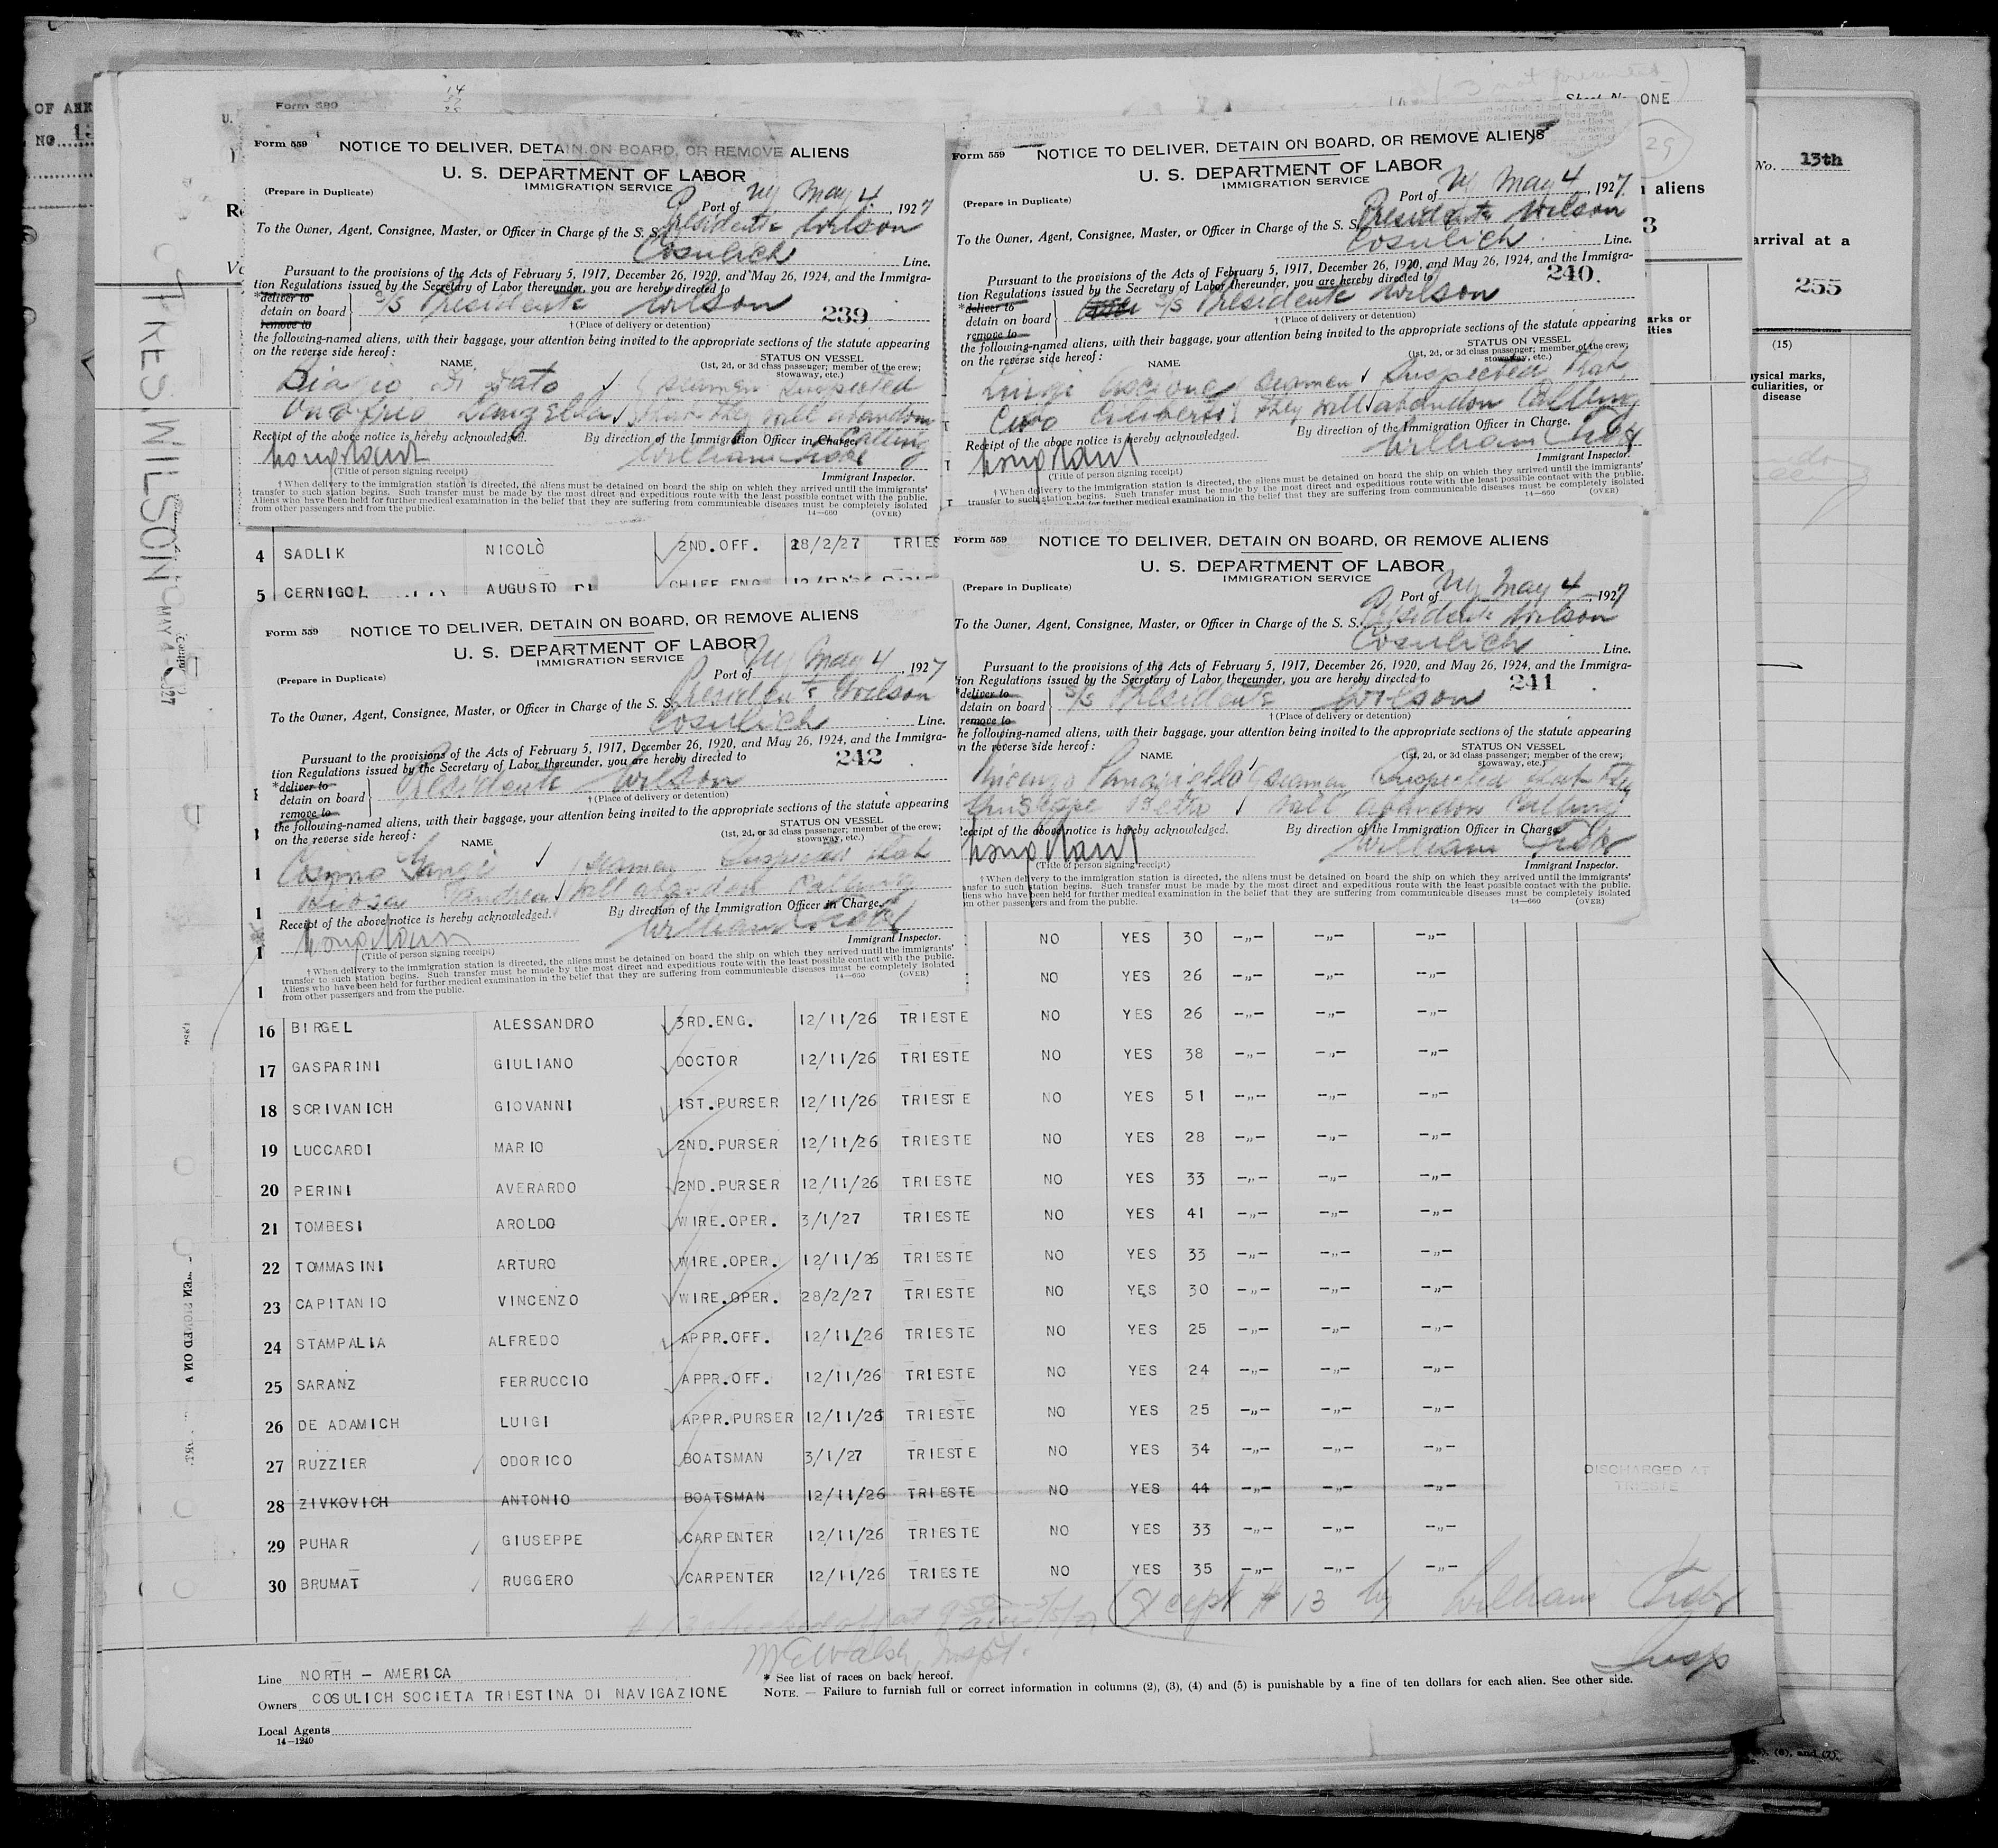 OF
NO 13
Form 680
14
(3 not presented)
Sheet No. ONE
29
No. 13th
aliens
3
arrival at a
255
(15)
physical marks,
peculiarities, or
disease
marks or
PRES. WILSON
MAY 4 1927
Form 559
NOTICE TO DELIVER, DETAIN ON BOARD, OR REMOVE ALIENS
U. S. DEPARTMENT OF LABOR
IMMIGRATION SERVICE
(Prepare in Duplicate)
Port of NY May 4, 1927
To the Owner, Agent, Consignee, Master, or Officer in Charge of the S. S. Presidente Wilson
Cosulich Line.
Pursuant to the provisions of the Acts of February 5, 1917, December 26, 1920, and May 26, 1924, and the Immigra-
tion Regulations issued by the Secretary of Labor thereunder, you are hereby directed to
*deliver to
detain on board
remove to
S/S Presidente Wilson 239
† (Place of delivery or detention)
the following-named aliens, with their baggage, your attention being invited to the appropriate sections of the statute appearing
on the reverse side hereof:
NAME
STATUS ON VESSEL
(1st, 2d, or 3d class passenger; member of the crew;
stowaway, etc.)
Biagio Di Dato seamen suspected
Onofrio that they will abandon
Calling
Receipt of the above notice is hereby acknowledged. By direction of the Immigration Officer in Charge.
William
(Title of person signing receipt) Immigrant Inspector.
† When delivery to the immigration station is directed, the aliens must be detained on board the ship on which they arrived until the immigrants'
transfer to such station begins. Such transfer must be made by the most direct and expeditious route with the least possible contact with the public.
Aliens who have been held for further medical examination in the belief that they are suffering from communicable diseases must be completely isolated
from other passengers and from the public.
14—660 (OVER)
Form 559
NOTICE TO DELIVER, DETAIN ON BOARD, OR REMOVE ALIENS
U. S. DEPARTMENT OF LABOR
IMMIGRATION SERVICE
(Prepare in Duplicate)
Port of NY May 4, 1927
To the Owner, Agent, Consignee, Master, or Officer in Charge of the S. S. Presidente Wilson
Cosulich Line.
Pursuant to the provisions of the Acts of February 5, 1917, December 26, 1920, and May 26, 1924, and the Immigra-
tion Regulations issued by the Secretary of Labor thereunder, you are hereby directed to 240
*deliver to
detain on board
remove to
S/S Presidente Wilson
† (Place of delivery or detention)
the following-named aliens, with their baggage, your attention being invited to the appropriate sections of the statute appearing
on the reverse side hereof:
NAME
STATUS ON VESSEL
(1st, 2d, or 3d class passenger; member of the crew;
stowaway, etc.)
Luigi Ascione seamen suspected that
Ciro they will abandon Calling
Receipt of the above notice is hereby acknowledged. By direction of the Immigration Officer in Charge.
William
(Title of person signing receipt) Immigrant Inspector.
† When delivery to the immigration station is directed, the aliens must be detained on board the ship on which they arrived until the immigrants'
transfer to such station begins. Such transfer must be made by the most direct and expeditious route with the least possible contact with the public.
held for further medical examination in the belief that they are suffering from communicable diseases must be completely isolated
14—660 (OVER)
4 SADLIK NICOLÒ 2ND.OFF. 28/2/27 TRIES
5 CERNIGOI AUGUSTO CHIEF ENG
Form 559
NOTICE TO DELIVER, DETAIN ON BOARD, OR REMOVE ALIENS
U. S. DEPARTMENT OF LABOR
IMMIGRATION SERVICE
(Prepare in Duplicate)
Port of NY May 4, 1927
To the Owner, Agent, Consignee, Master, or Officer in Charge of the S. S. Presidente Wilson
Cosulich Line.
Pursuant to the provisions of the Acts of February 5, 1917, December 26, 1920, and May 26, 1924, and the Immigra-
tion Regulations issued by the Secretary of Labor thereunder, you are hereby directed to 241
*deliver to
detain on board
remove to
S/S Presidente Wilson
† (Place of delivery or detention)
he following-named aliens, with their baggage, your attention being invited to the appropriate sections of the statute appearing
n the reverse side hereof:
NAME
STATUS ON VESSEL
(1st, 2d, or 3d class passenger; member of the crew;
stowaway, etc.)
Vincenzo seamen suspected that they
Giuseppe Pietro will abandon Calling
Receipt of the above notice is hereby acknowledged. By direction of the Immigration Officer in Charge.
William
(Title of person signing receipt) Immigrant Inspector.
† When delivery to the immigration station is directed, the aliens must be detained on board the ship on which they arrived until the immigrants'
ansfer to such station begins. Such transfer must be made by the most direct and expeditious route with the least possible contact with the public.
liens who have been held for further medical examination in the belief that they are suffering from communicable diseases must be completely isolated
om other passengers and from the public.
14—660 (OVER)
Form 559
NOTICE TO DELIVER, DETAIN ON BOARD, OR REMOVE ALIENS
U. S. DEPARTMENT OF LABOR
IMMIGRATION SERVICE
(Prepare in Duplicate)
Port of NY May 4, 1927
To the Owner, Agent, Consignee, Master, or Officer in Charge of the S. S. Presidente Wilson
Cosulich Line.
Pursuant to the provisions of the Acts of February 5, 1917, December 26, 1920, and May 26, 1924, and the Immigra-
tion Regulations issued by the Secretary of Labor thereunder, you are hereby directed to 242
*deliver to
detain on board
remove to
Presidente Wilson
† (Place of delivery or detention)
the following-named aliens, with their baggage, your attention being invited to the appropriate sections of the statute appearing
on the reverse side hereof:
NAME
STATUS ON VESSEL
(1st, 2d, or 3d class passenger; member of the crew;
stowaway, etc.)
Cosimo seamen suspected that
Andrea will abandon Calling
Receipt of the above notice is hereby acknowledged. By direction of the Immigration Officer in Charge.
William
(Title of person signing receipt) Immigrant Inspector.
† When delivery to the immigration station is directed, the aliens must be detained on board the ship on which they arrived until the immigrants'
transfer to such station begins. Such transfer must be made by the most direct and expeditious route with the least possible contact with the public.
Aliens who have been held for further medical examination in the belief that they are suffering from communicable diseases must be completely isolated
from other passengers and from the public.
14—660 (OVER)
NO YES 30 —„— —„— —„—
NO YES 26 —„— —„— —„—
16 BIRGEL ALESSANDRO 3RD.ENG. 12/11/26 TRIESTE NO YES 26 —„— —„— —„—
17 GASPARINI GIULIANO DOCTOR 12/11/26 TRIESTE NO YES 38 —„— —„— —„—
18 SCRIVANICH GIOVANNI 1ST.PURSER 12/11/26 TRIESTE NO YES 51 —„— —„— —„—
19 LUCCARDI MARIO 2ND.PURSER 12/11/26 TRIESTE NO YES 28 —„— —„— —„—
20 PERINI AVERARDO 2ND.PURSER 12/11/26 TRIESTE NO YES 33 —„— —„— —„—
21 TOMBESI AROLDO WIRE.OPER. 3/1/27 TRIESTE NO YES 41 —„— —„— —„—
22 TOMMASINI ARTURO WIRE.OPER. 12/11/26 TRIESTE NO YES 33 —„— —„— —„—
23 CAPITANIO VINCENZO WIRE.OPER. 28/2/27 TRIESTE NO YES 30 —„— —„— —„—
24 STAMPALIA ALFREDO APPR.OFF. 12/11/26 TRIESTE NO YES 25 —„— —„— —„—
25 SARANZ FERRUCCIO APPR.OFF. 12/11/26 TRIESTE NO YES 24 —„— —„— —„—
26 DE ADAMICH LUIGI APPR.PURSER 12/11/26 TRIESTE NO YES 25 —„— —„— —„—
27 RUZZIER ODORICO BOATSMAN 3/1/27 TRIESTE NO YES 34 —„— —„— —„—
28 ZIVKOVICH ANTONIO BOATSMAN 12/11/26 TRIESTE NO YES 44 —„— —„— —„— DISCHARGED AT TRIESTE
29 PUHAR GIUSEPPE CARPENTER 12/11/26 TRIESTE NO YES 33 —„— —„— —„—
30 BRUMAT RUGGERO CARPENTER 12/11/26 TRIESTE NO YES 35 —„— —„— —„—
# 13 checked off at 9 50 am 5/5/27 (Except # 13 by William
McEwalsh, Inspt. Insp
Line NORTH - AMERICA
Owners COSULICH SOCIETA TRIESTINA DI NAVIGAZIONE
Local Agents
14—1240
* See list of races on back hereof.
NOTE. — Failure to furnish full or correct information in columns (2), (3), (4) and (5) is punishable by a fine of ten dollars for each alien. See other side.
(6), and (7),